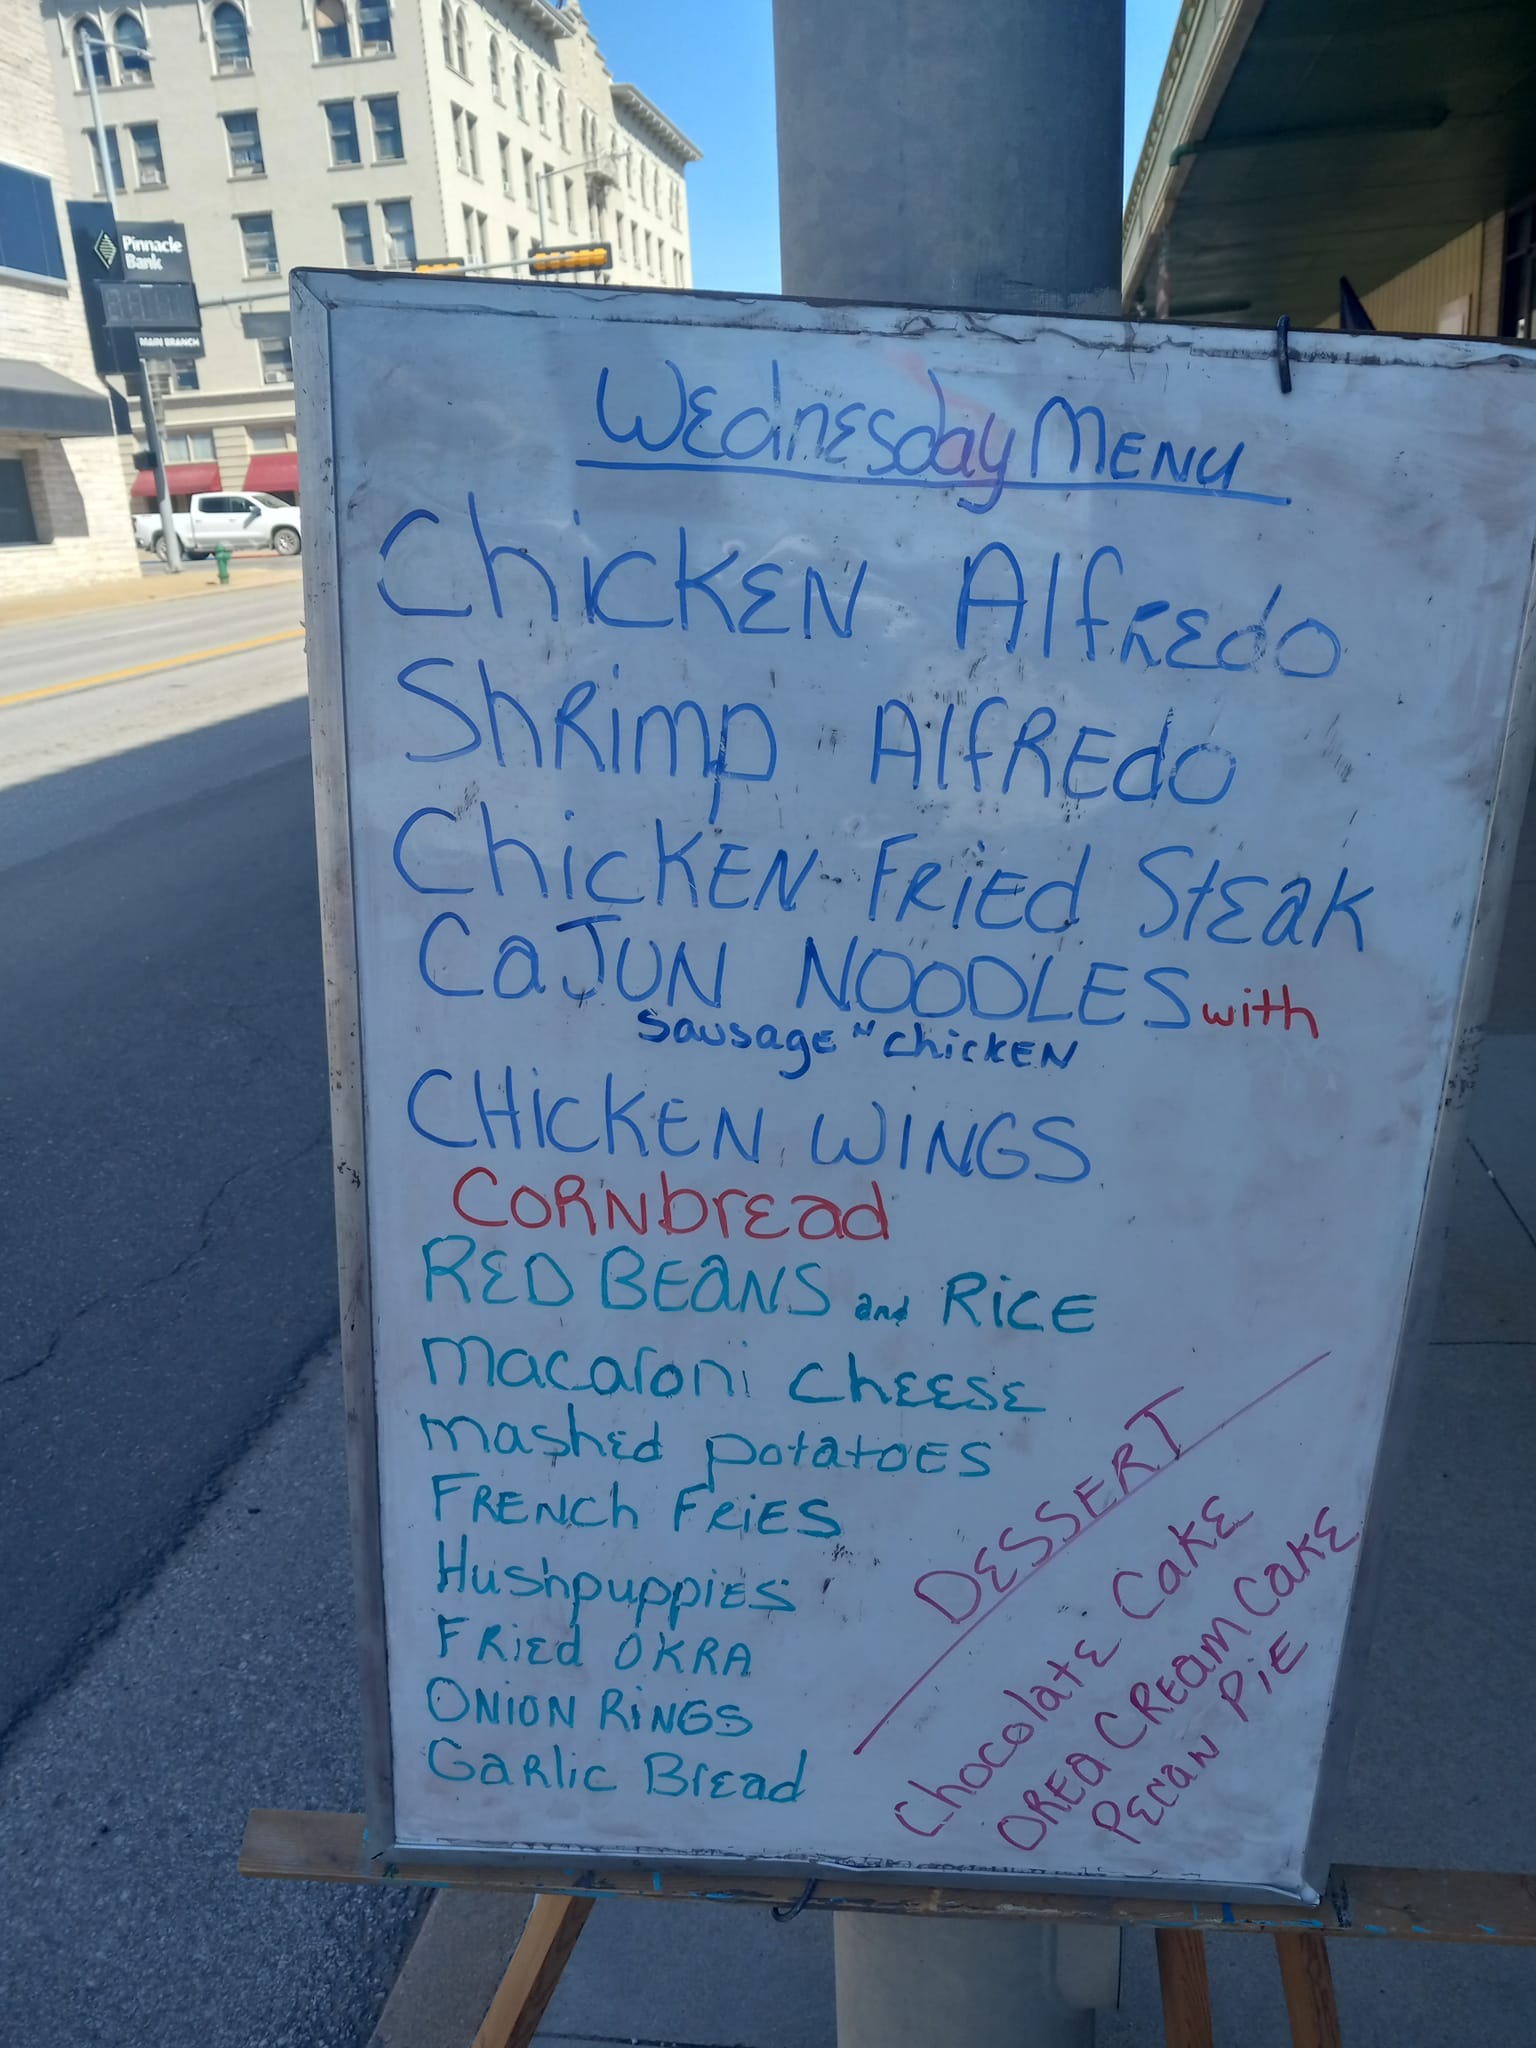 Pinnacle
Bank
MAIN BRANCH
Wednesday MENU
Chicken Alfredo
Shrimp Alfredo
Chicken-Fried Steak
Cajun NOODLES with
Sausage "N" Chicken
CHICKEN WINGS
Cornbread
RED BEANS and RICE
macaroni cheese
mashed potatoes
FRENCH FRIES
Hushpuppies
FRied OKRA
ONION RINGS
Garlic Bread
DESSERT
Chocolate Cake
OREA CREAM CAKE
Pecan PiE